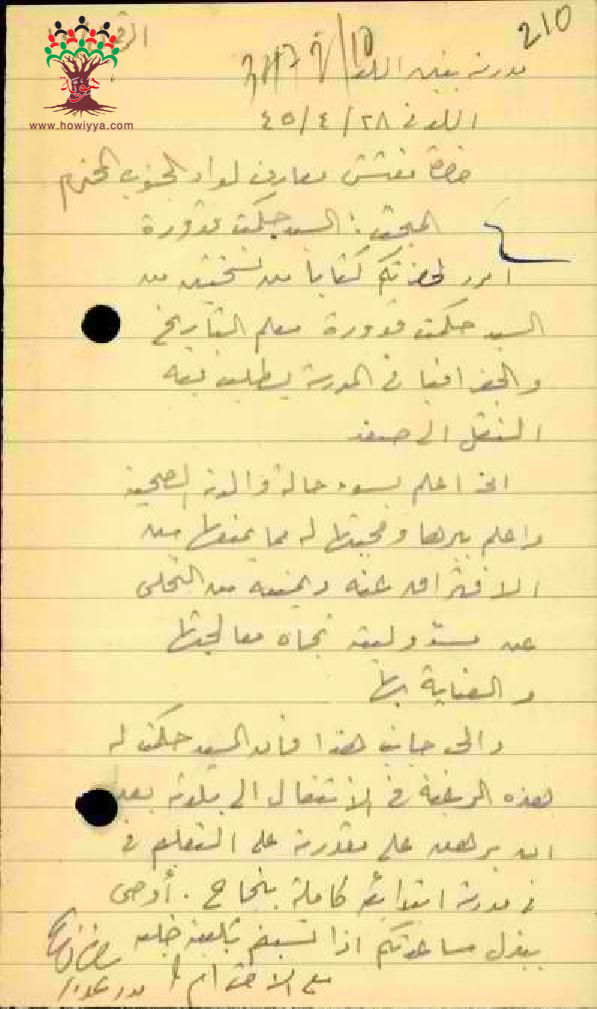 210
هوية
www.howiyya.com
مدرسة
اللد في ٢٨/٤/٤٥
حضرة مفتش معارف لواء الجنوب المحترم
المبحث: السيد حكمت قدورة
امرر لحضرتكم كتابا من نسختين من
السيد حكمت قدورة معلم التاريخ
والجغرافيا في المدرسة يطلب فيه
النقل الى صفد
اني اعلم بسوء حالة والدته الصحية
واعلم ببرها ومحبتها له مما يمنعها من
الافتراق عنه ويمنعه من التخلي
عن مسئوليته تجاه معالجتها
والعناية بها
والى جانب هذا فان السيد حكمت له
هذه الرغبة في الانتقال الى بلدته بعد
ان برهن على مقدرته على التعليم في
في مدرسة ابتدائية كاملة بنجاح. أرجو
ببذل مساعدتكم اذا تلبية طلبه
مع الاحترام